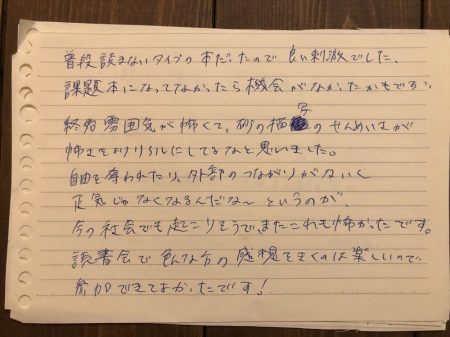 普段読まないタイプの本だったので良い刺激でした。
課題本になってなかったら機会がなかったかもです。
終始雰囲気が怖くて、砂の描写のせんめいさが
怖さをよりリアルにしてるなと思いました。
自由を奪われたり、外部のつながりがないと
正気じゃなくなるんだな〜というのが、
今の社会でも起こりそうで、またこれも怖かったです。
読書会で色んな方の感想をきくのは楽しいので
参加できてよかったです！